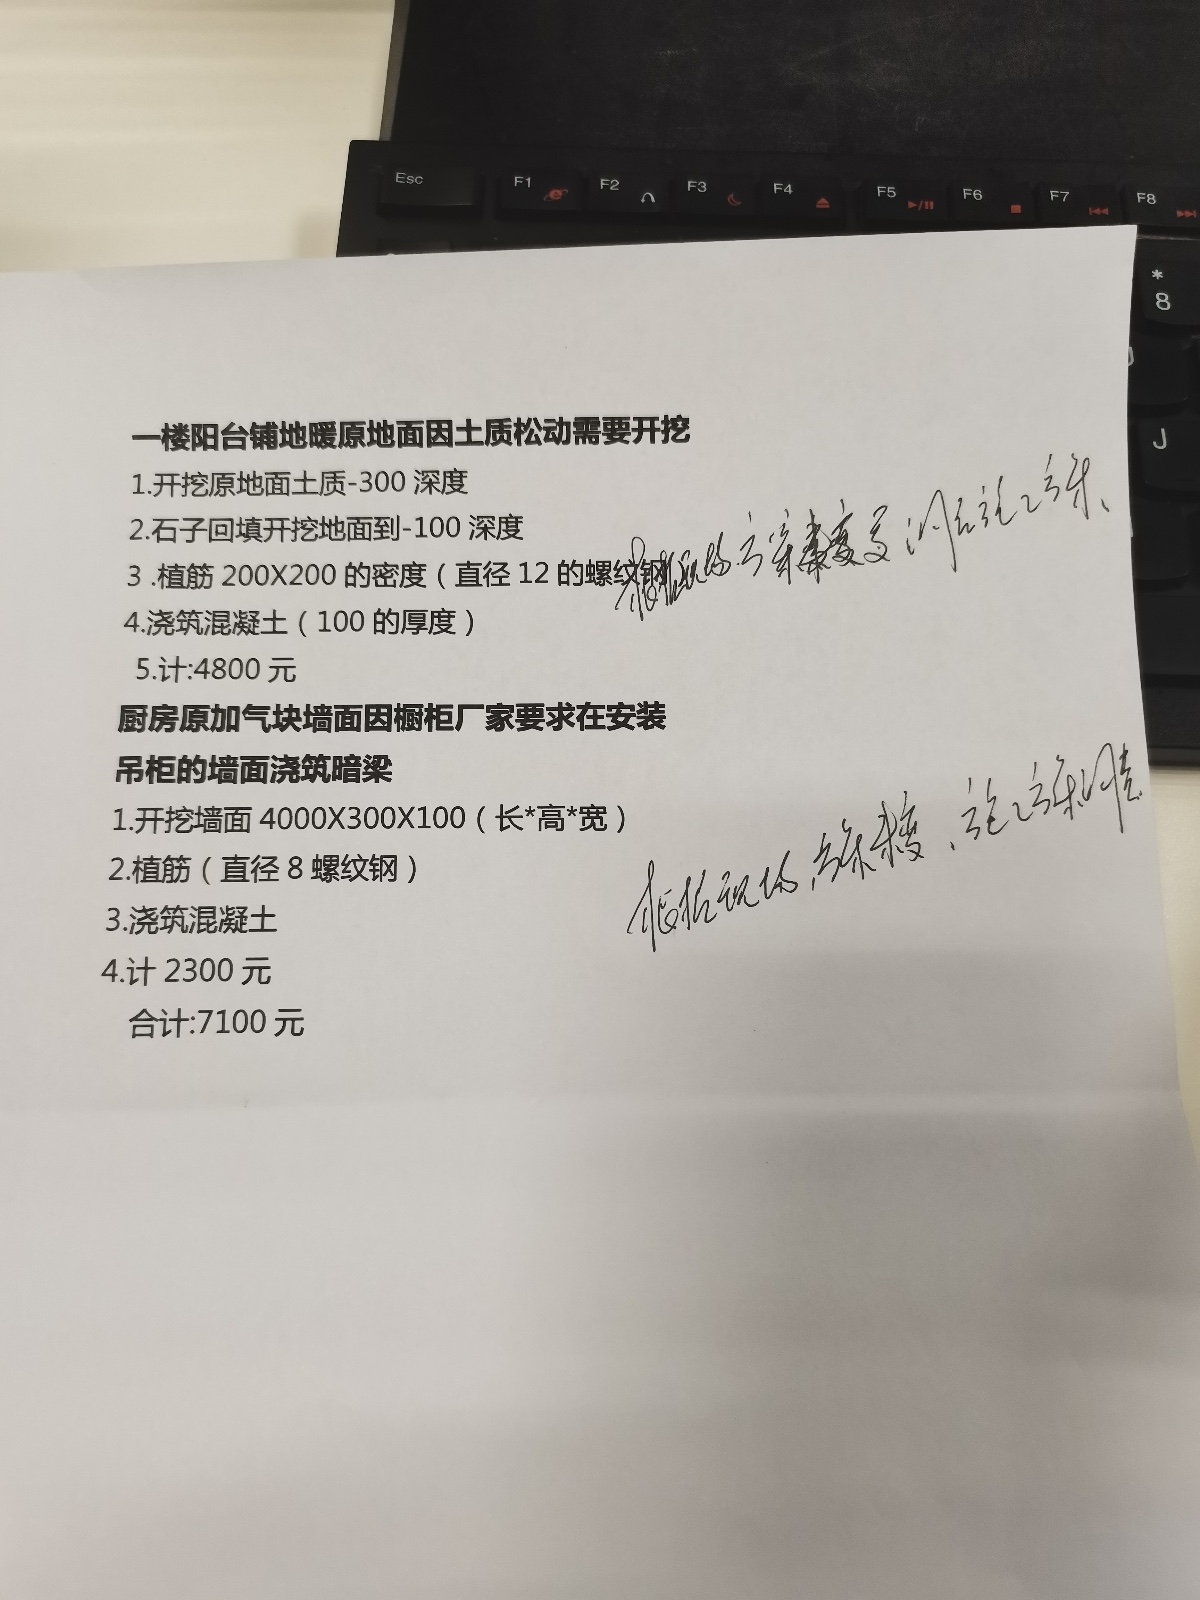 Esc F1 F2 F3 F4 F5 F6 F7 F8
*
8
J
一楼阳台铺地暖原地面因土质松动需要开挖
1.开挖原地面土质-300 深度
2.石子回填开挖地面到-100 深度
3 .植筋 200X200 的密度（直径 12 的螺纹钢
4.浇筑混凝土（100 的厚度）
5.计:4800 元
厨房原加气块墙面因橱柜厂家要求在安装
吊柜的墙面浇筑暗梁
1.开挖墙面 4000X300X100（长*高*宽）
根据现场
2.植筋（直径 8 螺纹钢）
3.浇筑混凝土
4.计 2300 元
合计:7100 元